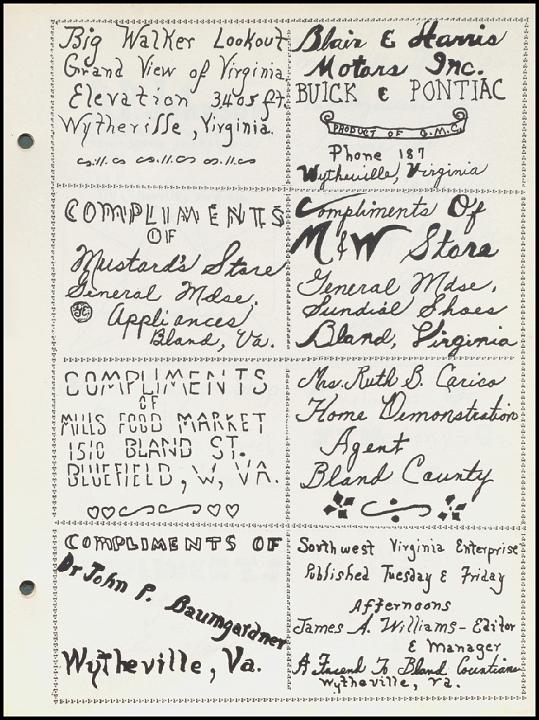 Big Walker Lookout
Grand View of Virginia
Elevation 3405 ft.
Wytheville, Virginia.
Blair & Harris
Motors Inc.
BUICK & PONTIAC
PRODUCT OF G.M.C.
Phone 187
Wytheville, Virginia
COMPLIMENTS
OF
Mustard's Store
General Mdse.
Appliances
Bland, Va.
Compliments Of
M & W Store
General Mdse,
Sundial Shoes
Bland, Virginia
COMPLIMENTS
OF
MILLS FOOD MARKET
1510 BLAND ST.
BLUEFIELD, W, VA.
Mrs. Ruth B. Carico
Home Demonstration
Agent
Bland County
COMPLIMENTS OF
Dr John P. Baumgardner
Wytheville, Va.
Southwest Virginia Enterprise
Published Tuesday & Friday
Afternoons
James A. Williams - Editor
& Manager
A Friend To Bland Countians
Wytheville, Va.